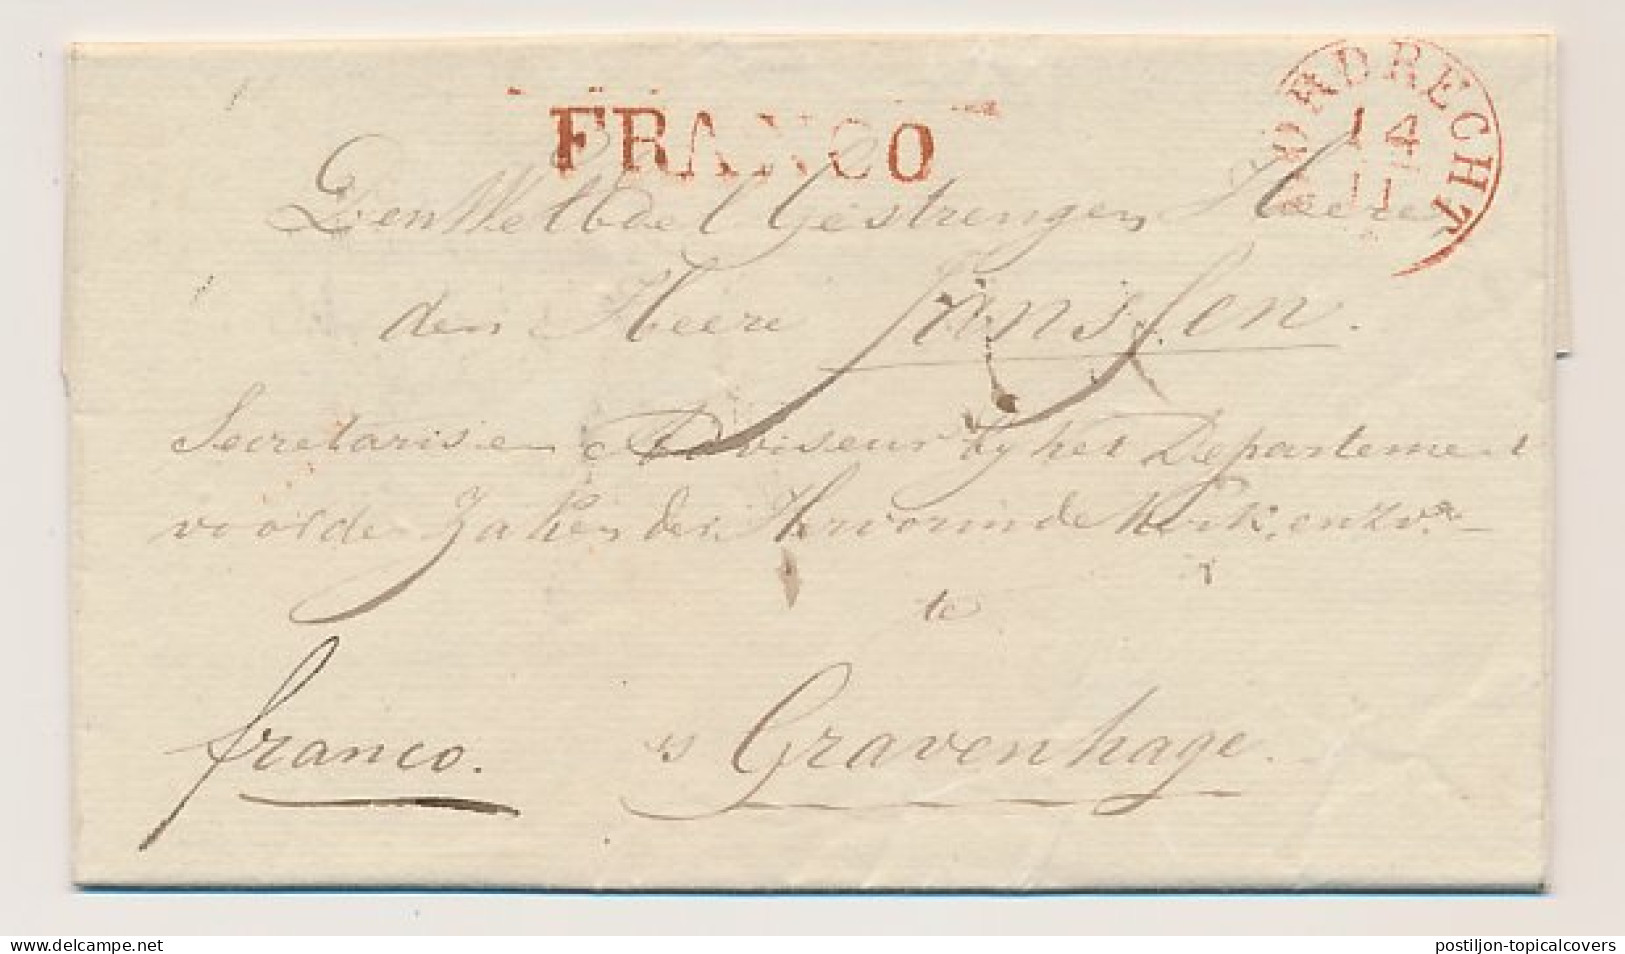 FRANCO
DORDRECHT
14
Den WelEdel Gestrengen Heere
den Heere Janssen.
Secretaris en Adviseur by het Departement
voor de Zaken der Hervormde Kerk, enz.
te
's Gravenhage.
franco.
www.delcampe.net
postiljon-topicalcovers